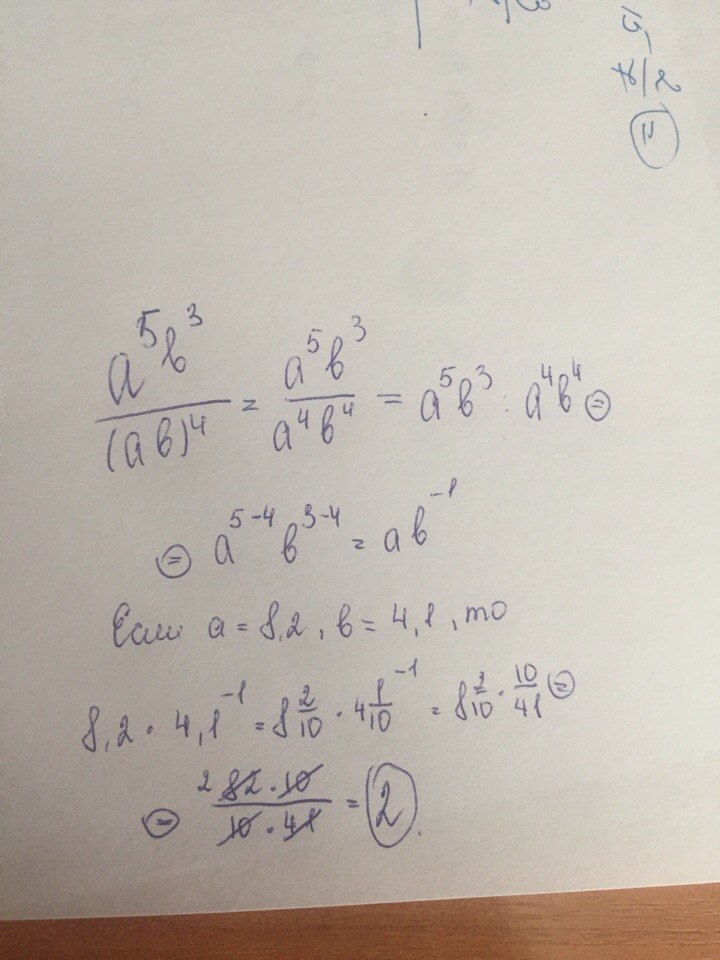 15
2
=
a⁵b³/(ab)⁴ = a⁵b³/a⁴b⁴ = a⁵b³ : a⁴b⁴ ⊜
⊜ a⁵⁻⁴ b³⁻⁴ = ab⁻¹
Если a = 8,2 , b = 4,1 , то
8,2 · 4,1⁻¹ = 8 2/10 · 4 1/10⁻¹ = 8 2/10 · 10/41 ⊜
⊜ 2 82 · 10 / 10 · 41 = 2.